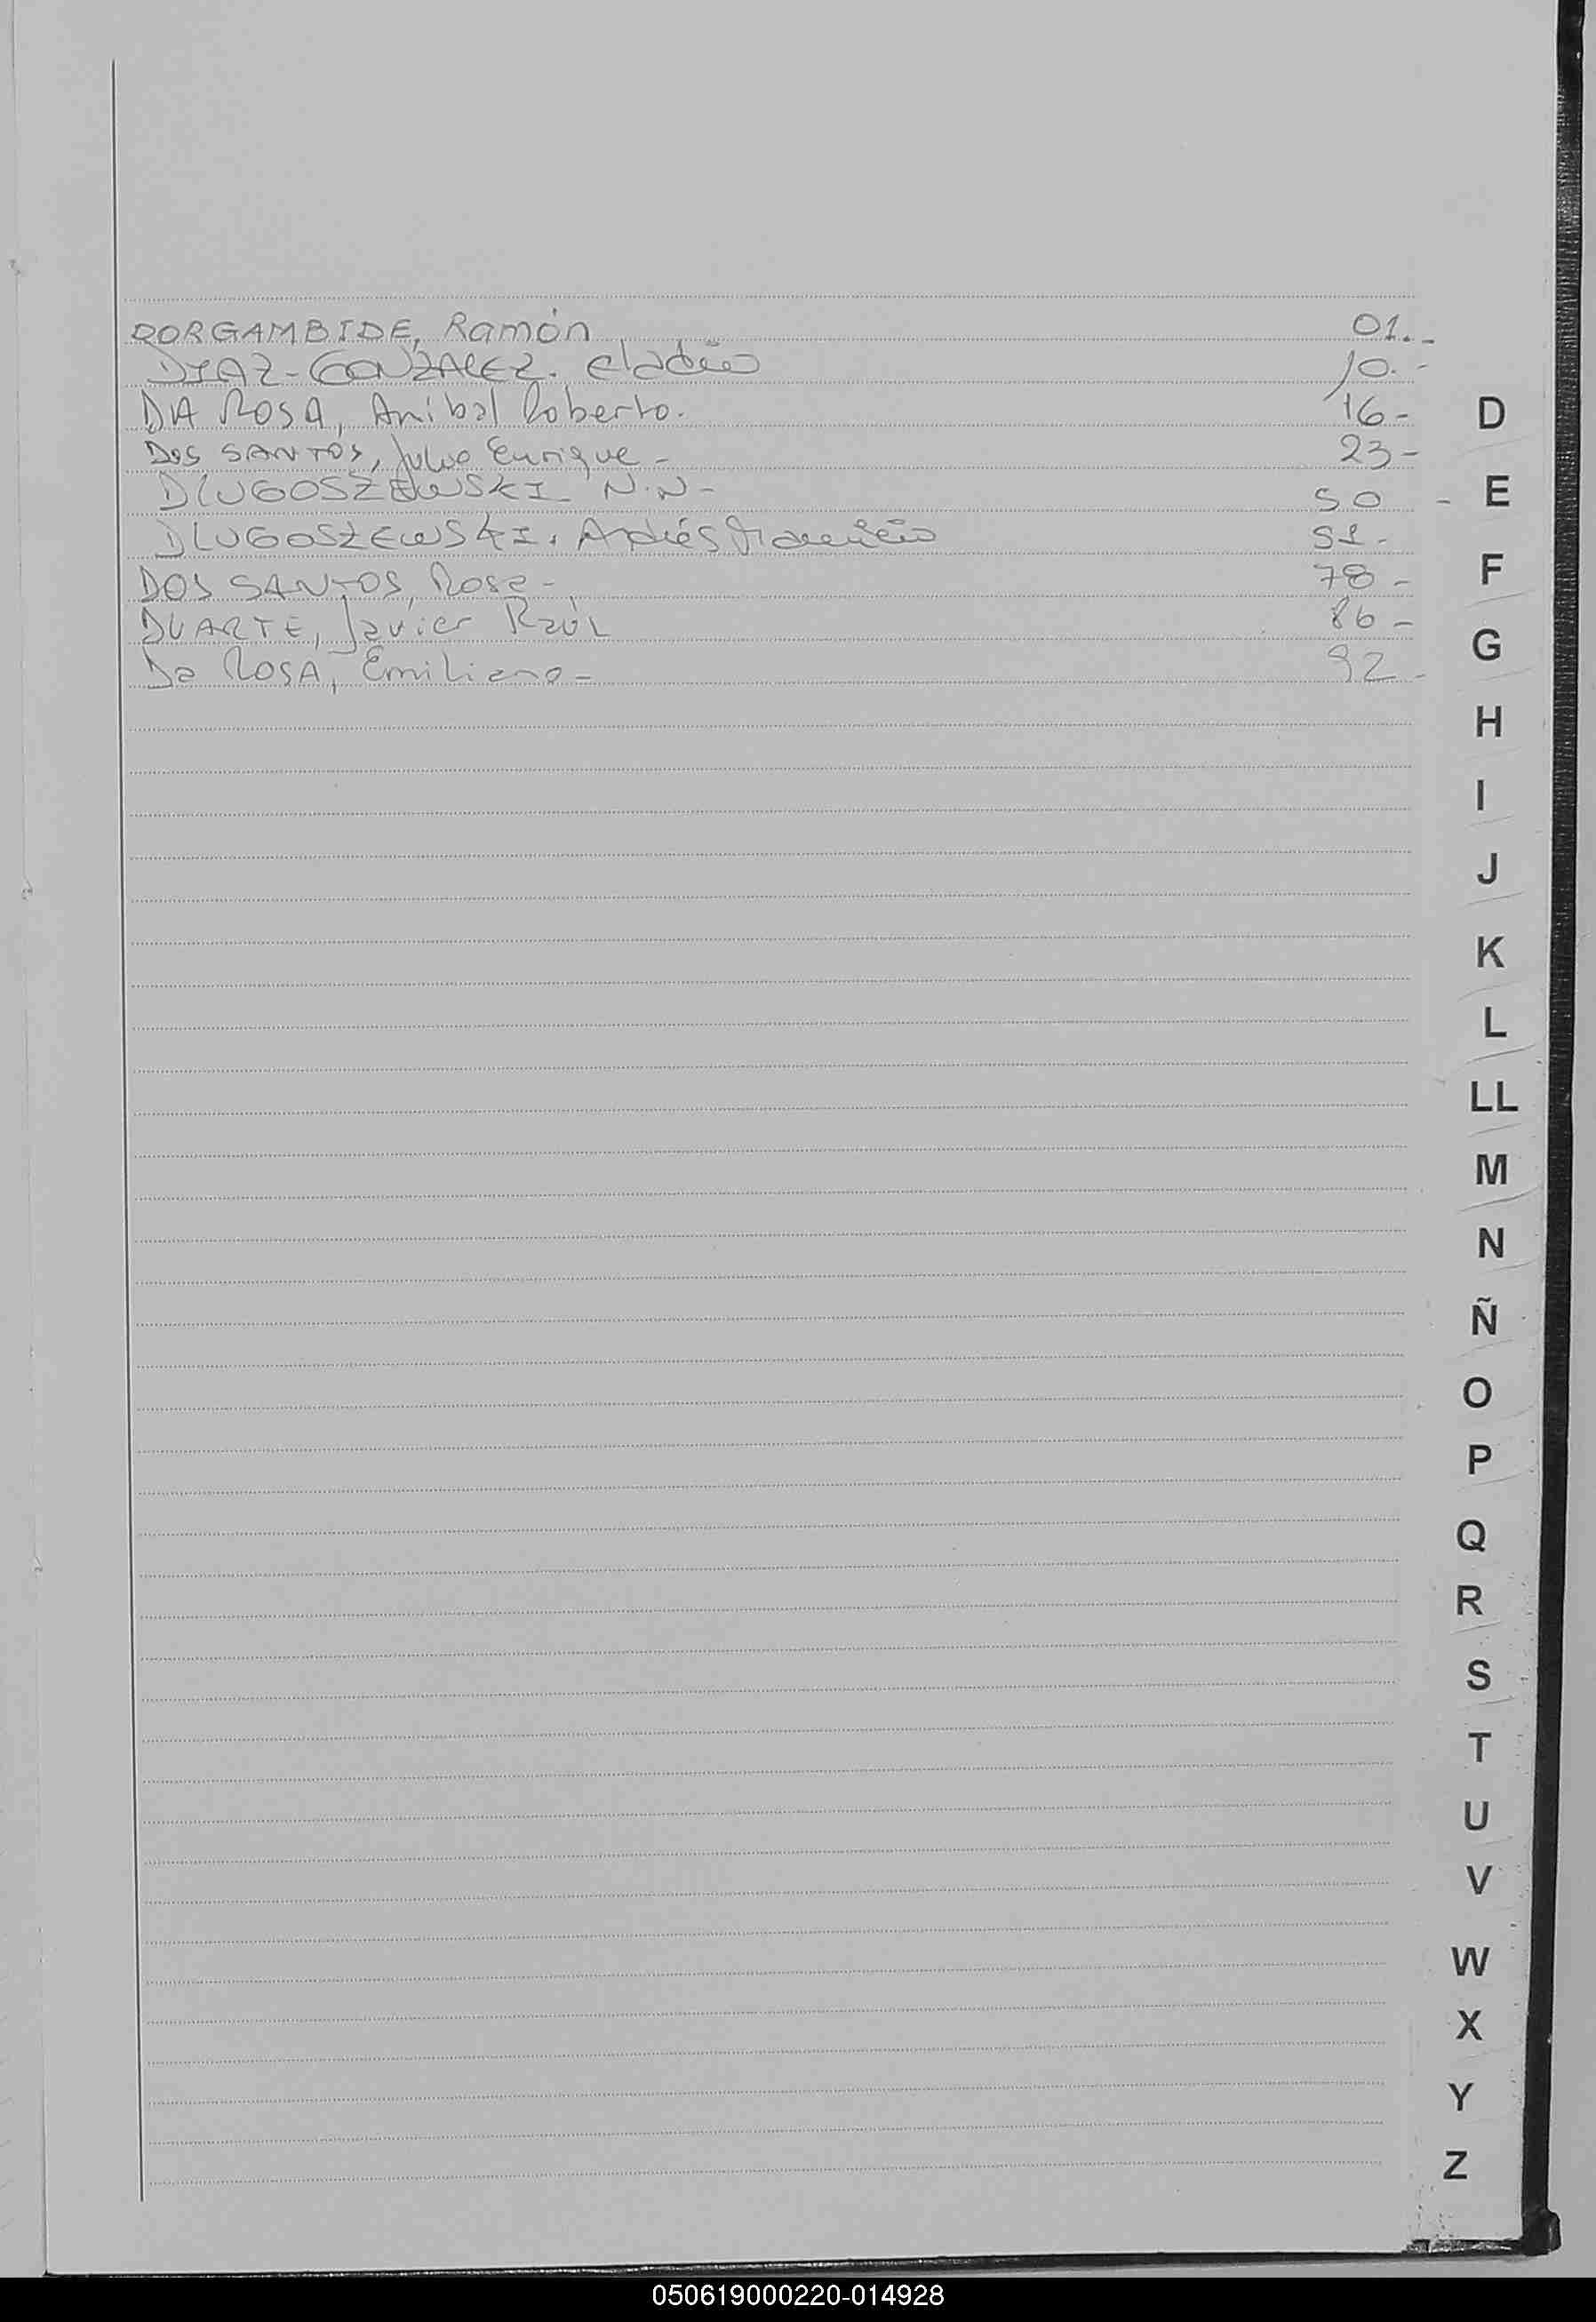 DORGAMBIDE, Ramón 01.-
DIAZ-GONZALEZ. eladio 10.-
DA ROSA, Anibal Roberto. 16-
Dos SANTOS, Julio Enrique - 23-
DLUGOSZEWSKI N.N- 50 -
DLUGOSZEWSKI. Andrés Francisco 51-
DOS SANTOS, Rosa - 78-
DUARTE, Javier Raúl 86-
Da ROSA, Emiliano - 92-
D
E
F
G
H
I
J
K
L
LL
M
N
Ñ
O
P
Q
R
S
T
U
V
W
X
Y
Z
050619000220-014928